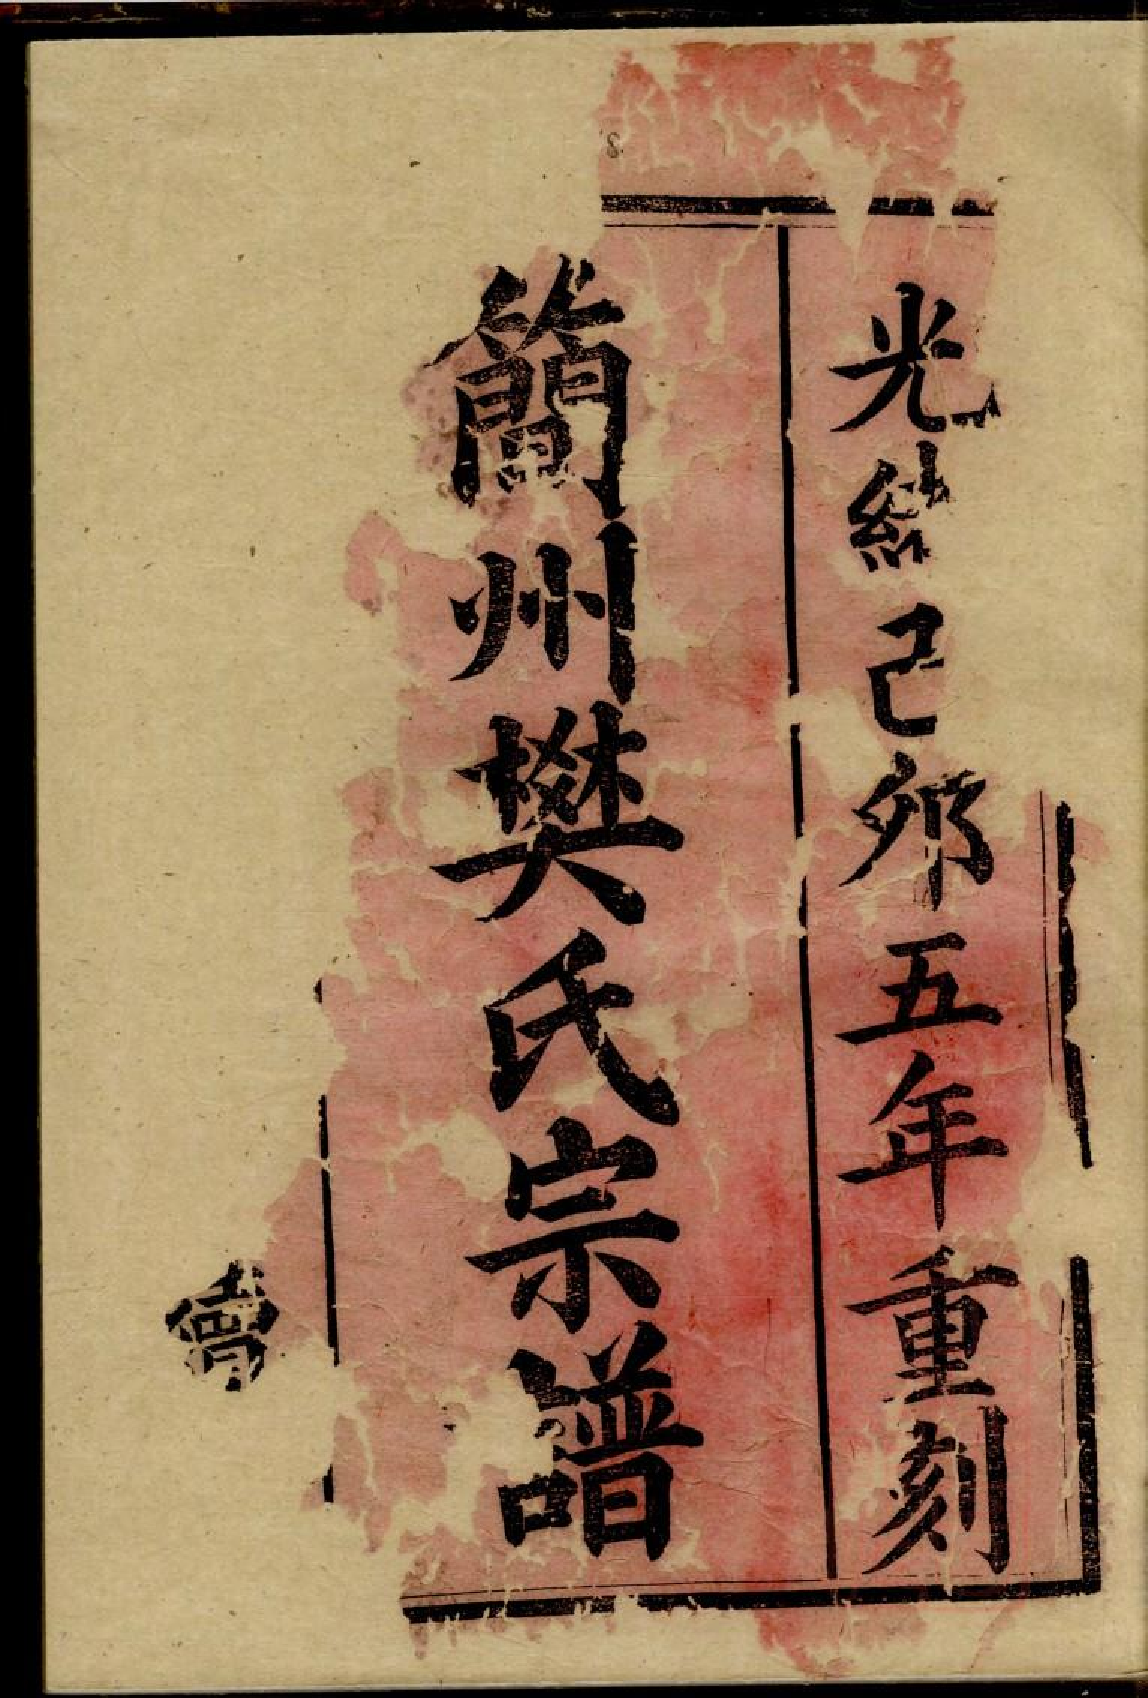 光緒己夘五年重刻
簡州樊氏宗譜